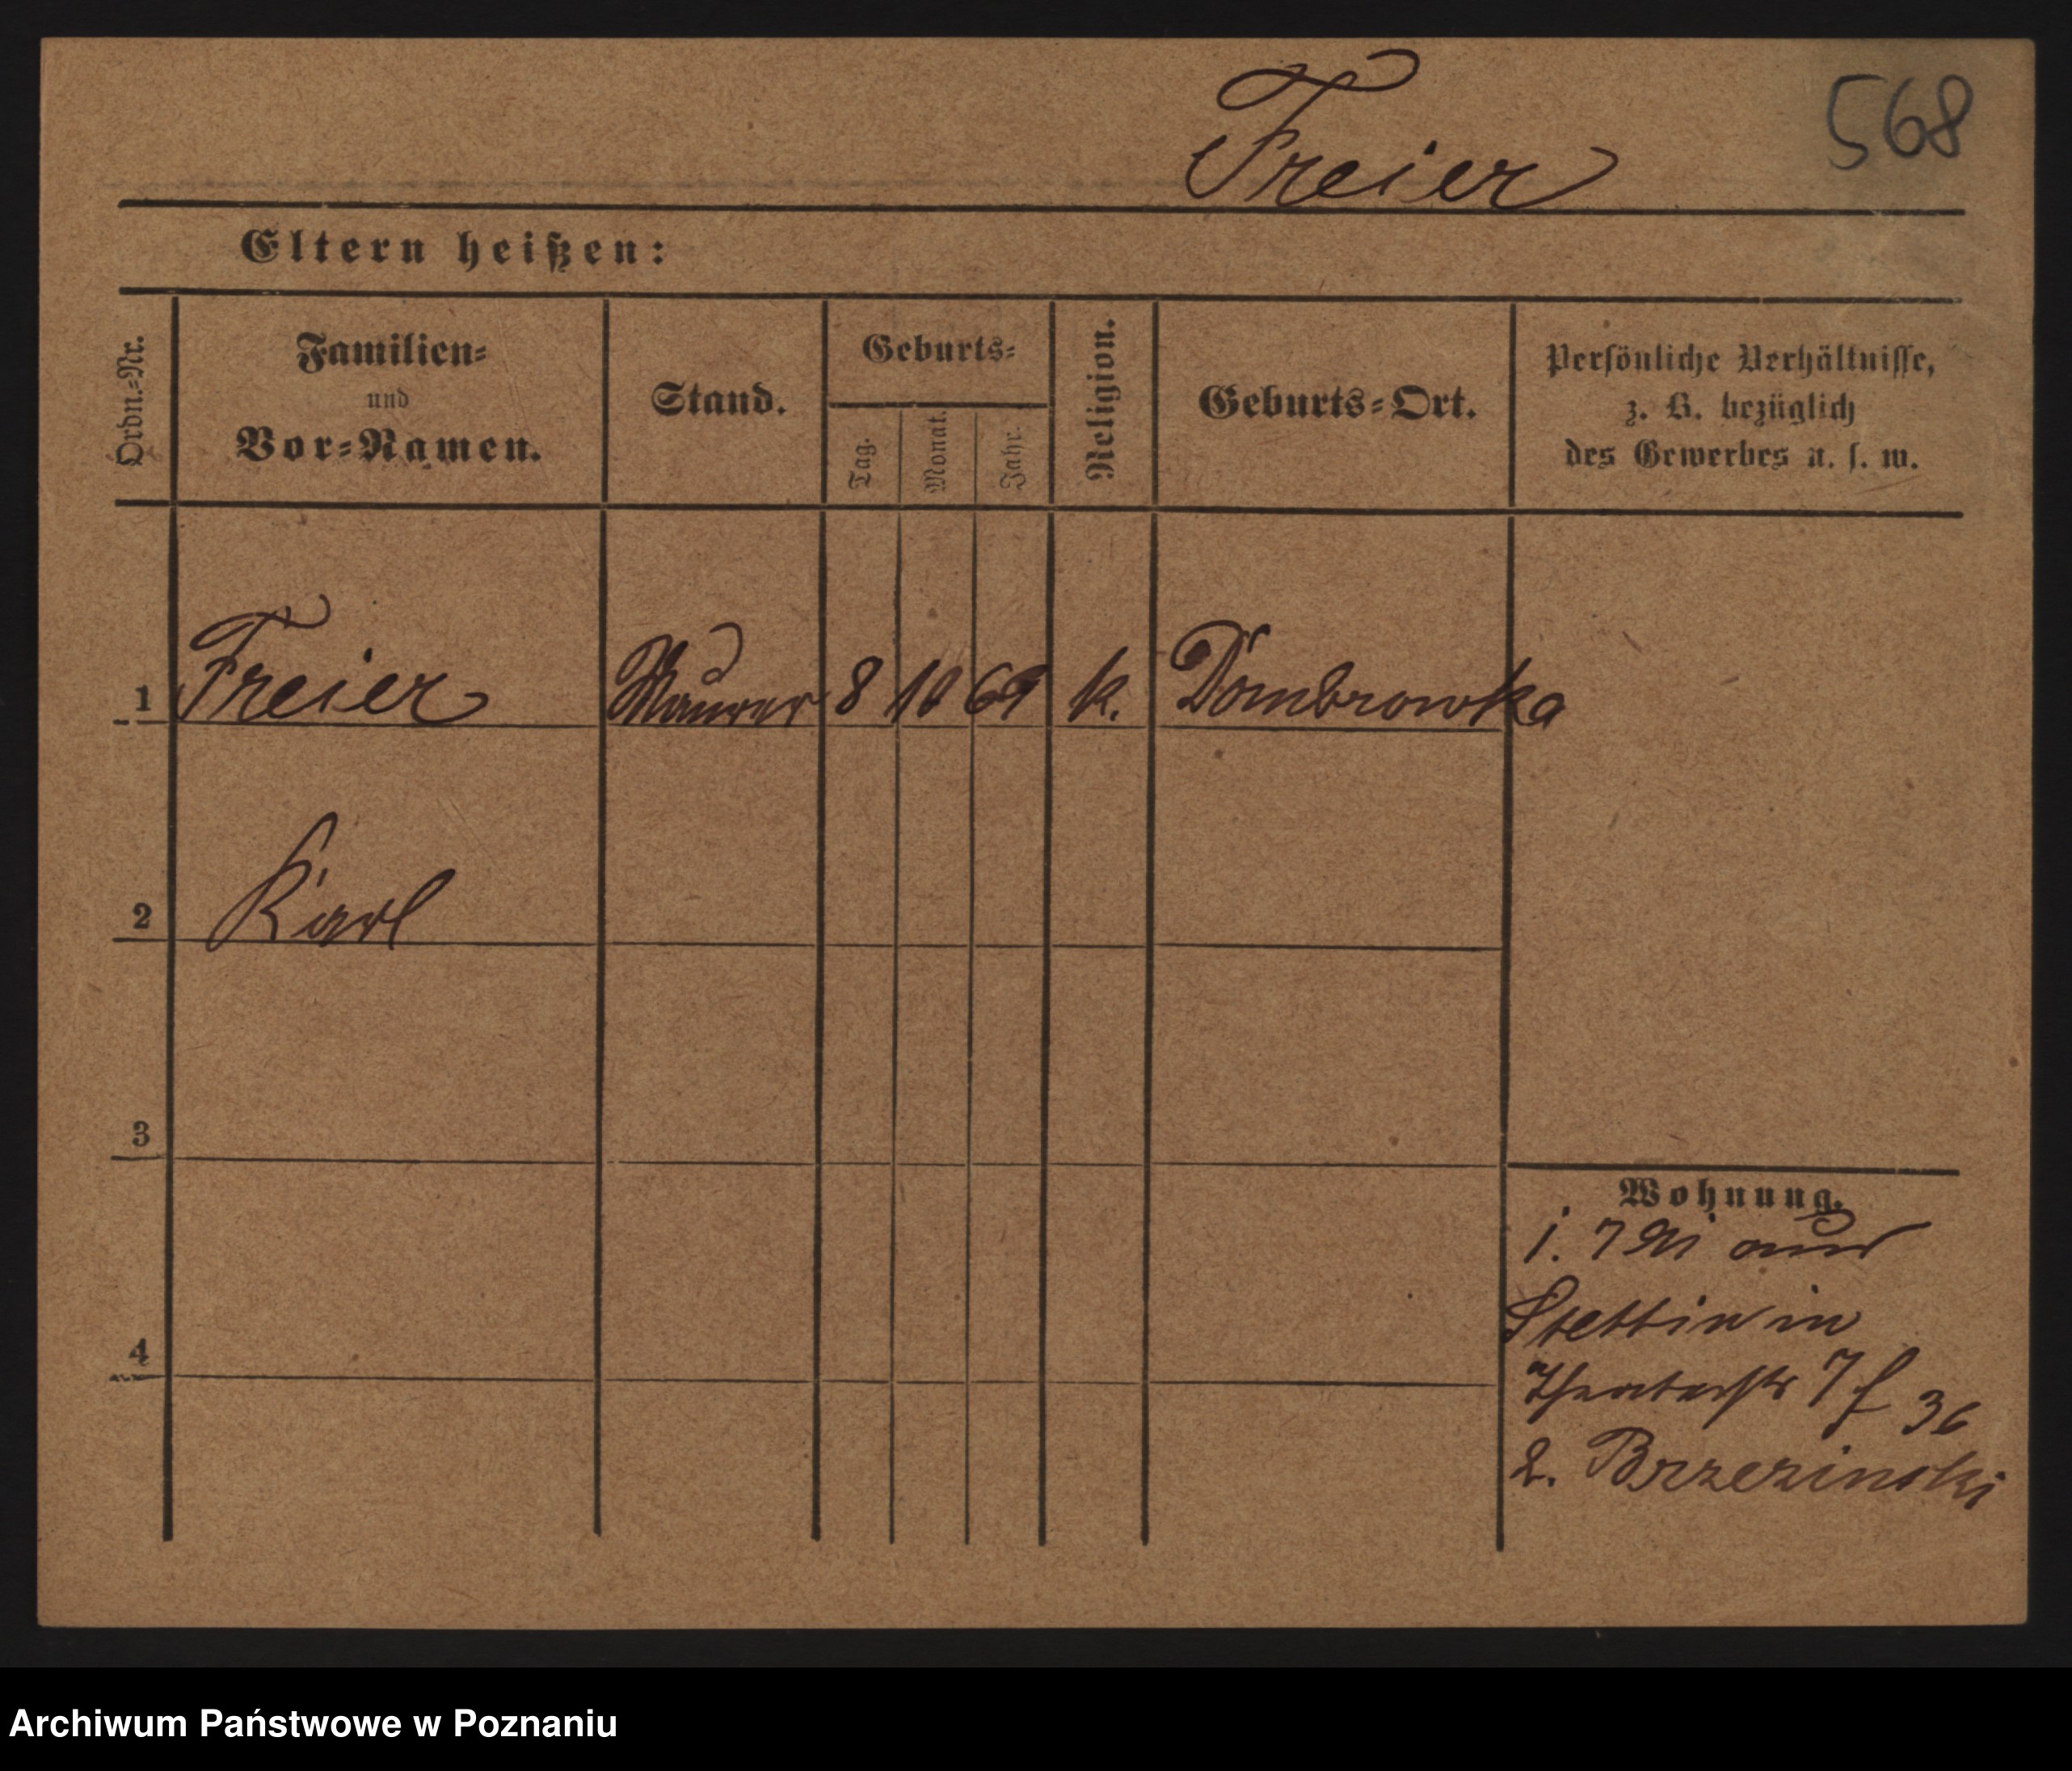 568
Freier
Eltern heißen:
Ordn.-Nr.
Familien-
und
Vor-Namen.
Stand.
Geburts-
Tag.
Monat.
Jahr.
Religion.
Geburts-Ort.
Persönliche Verhältnisse,
z. B. bezüglich
des Gewerbes u. s. w.
1 Freier Maurer 8 10 69 k. Dombrowka
2 Karl
3
4
Wohnung.
1. 7 91 aus
Stettin in
Theaterstr 7 f 36
2. Brzezinski
Archiwum Państwowe w Poznaniu